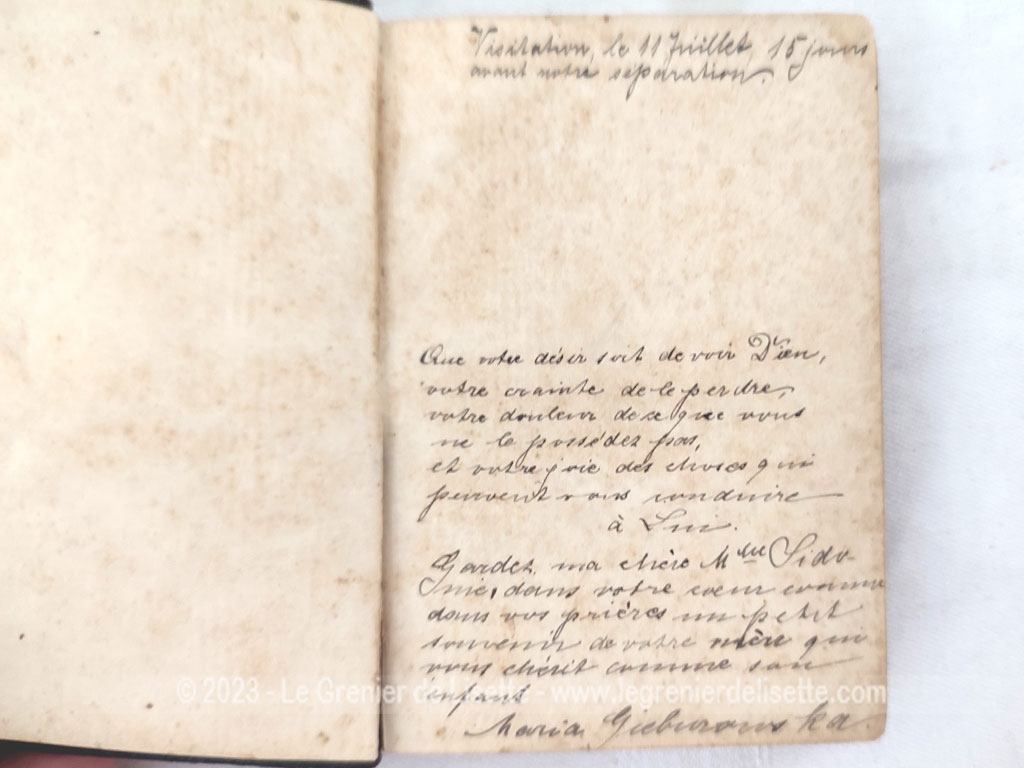 Visitation, le 11 Juillet, 15 jours
avant notre séparation.
Que votre désir soit de voir Dieu,
votre crainte de le perdre,
votre douleur de ce que vous
ne le possédez pas,
et votre joie des choses qui
peuvent vous conduire
à Lui.
Gardez, ma chère Mlle Sido-
nie, dans votre cœur comme
dans vos prières un petit
souvenir de votre mère qui
vous chérit comme son
enfant
© 2023 - Le Grenier de Lisette - www.legrenierdelisette.com
Maria Gieburowska.